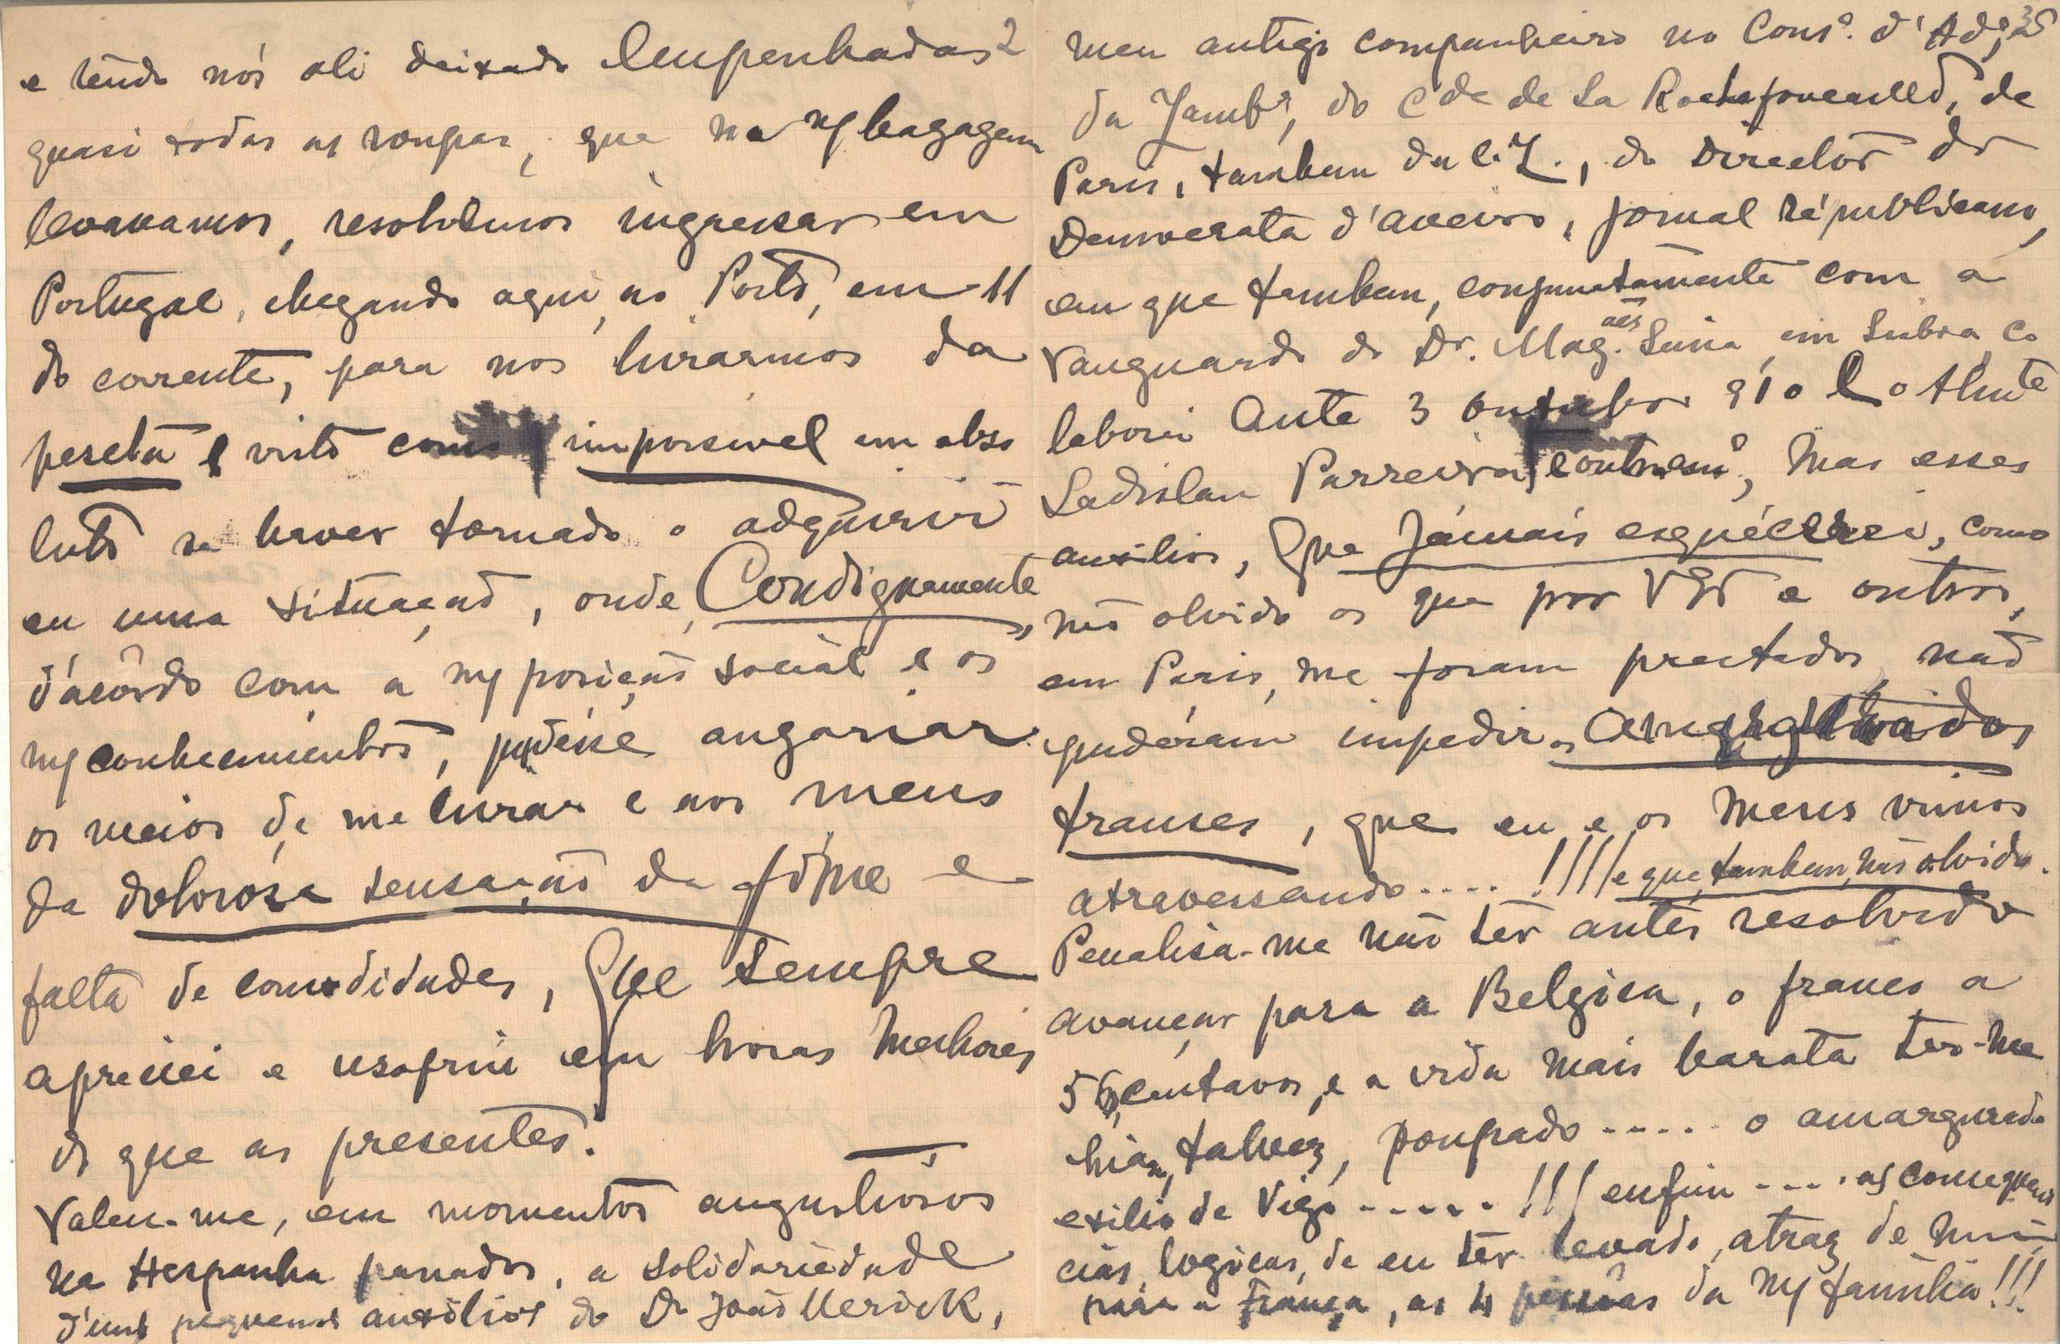 2
e tendo nós ali deixado Empenhadas
quasi todas as roupas, que na m/ bagagem
levavamos, resolvemos ingressar em
Portugal, chegando aqui, ao Porto, em 11
do corrente, para nos livrarmos da
peseta e visto como impossivel em abso
luto se haver tornado o adquirir
eu uma situação, onde, Condignamente,
d'acôrdo com a m/ posição social e os
m/ conhecimentos, podésse angariar
os meios de me livrar e aos meus
da dolorósa sensação da fôme e
falta de comodidades, Que sempre
apreciei e usofrui em horas melhores
do que as presentes.
Valeu-me, em momentos angustiosos
na Hespanha passados, a solidariedade
d'uns pequenos auxilios do Dr João
meu antigo companheiro no Cons.º d'Ad.
da Zamb.ª, do Cde de La Rochefoucauld, de
Paris, tambem da C. Z., do Director do
Democrata d'Aveiro, jornal républicano,
em que tambem, conjuntamente com a
Vanguarda do Dr. Mag.aes Lima em Lisboa, Co
laborei Ante 3 outubro 910 e o Almte
Ladislau Parreira, Mas esses
auxilios, Que Jámais esquécerei, como
não olvido os que por VEx e outros,
em Paris, me foram prestados, não
pudéram impedir os amargurados
transes, que eu e os Meus vimos
atravessando .... !!!! e que, tambem, não olvido.
Penalisa-me não ter antes resolvido
avançar para a Belgica, o franco a
56 centavos, e a vida mais barata ter-me
hia, talvez, poupado ..... o amargurado
exilio de Vigo ...... !!! enfim .... as consequen
cias, logicas, de eu ter levado, atraz de mim
para a França, as 4 pessôas da m/ familia!!!